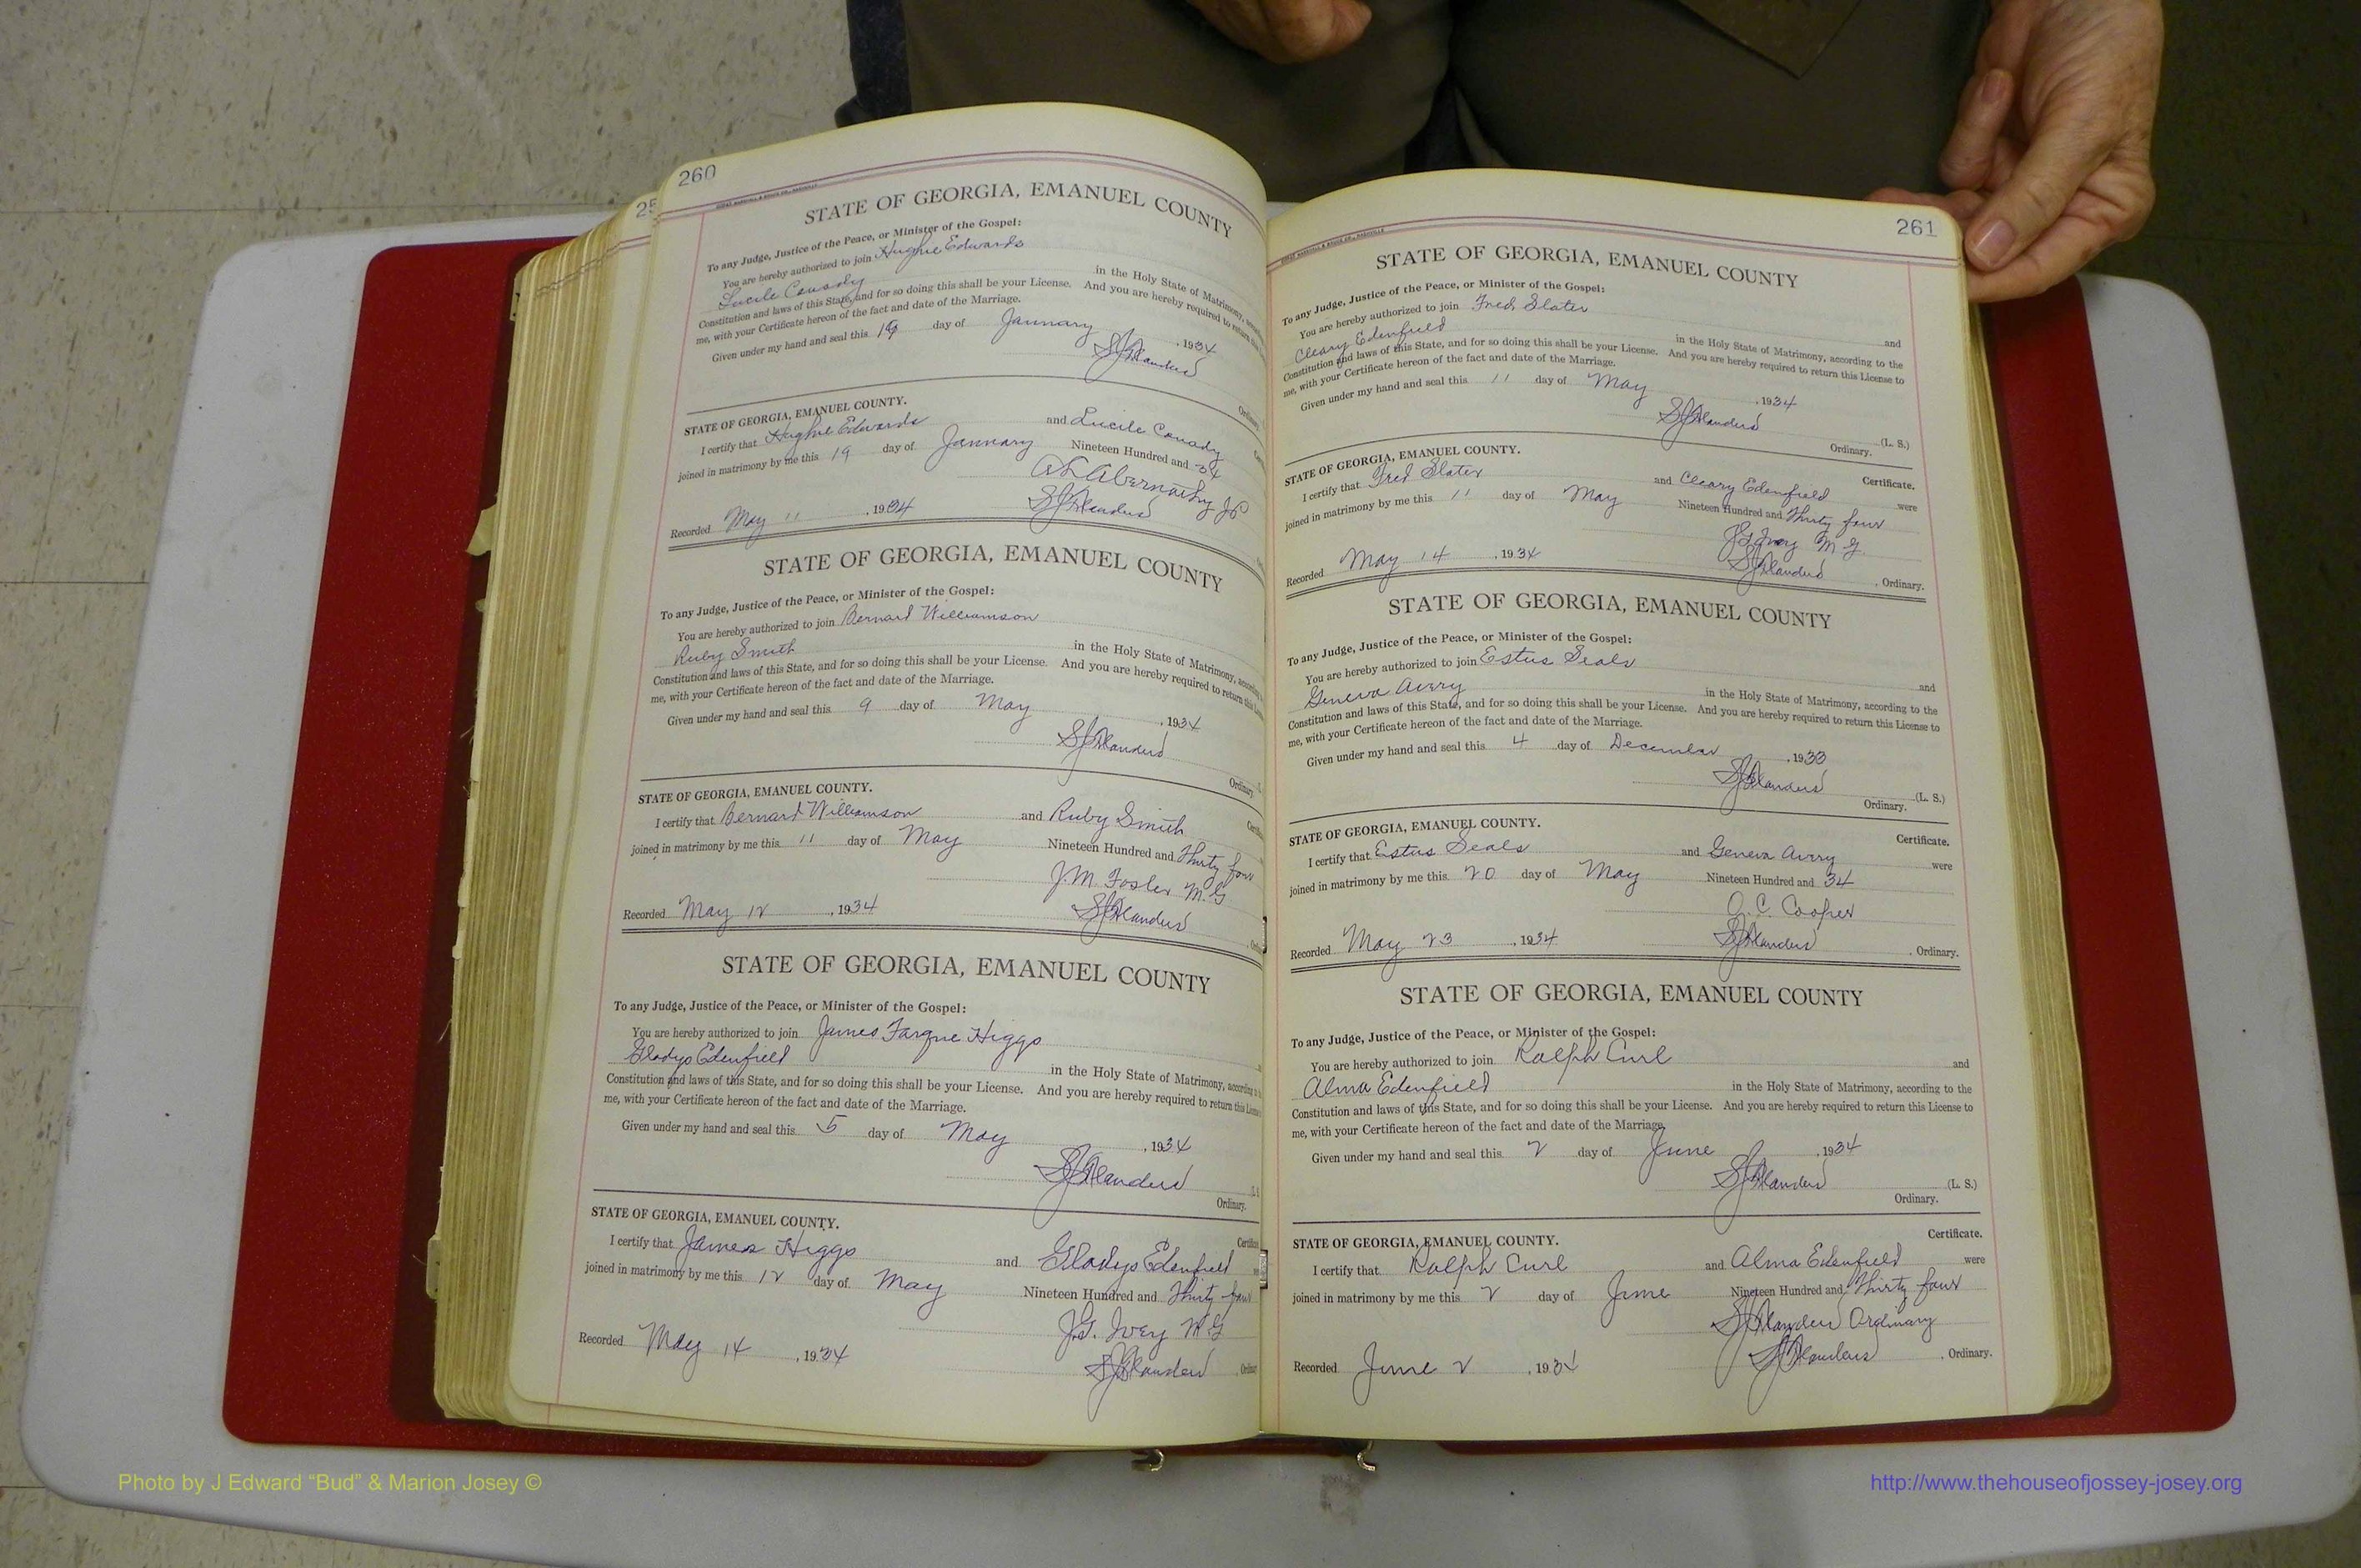 260
STATE OF GEORGIA, EMANUEL COUNTY
To any Judge, Justice of the Peace, or Minister of the Gospel:
You are hereby authorized to join Hughie Edwards
Lucile Canady in the Holy State of Matrimony,
Constitution and laws of this State, and for so doing this shall be your License. And you are hereby required to return
me, with your Certificate hereon of the fact and date of the Marriage.
Given under my hand and seal this 19 day of January, 1934
SJFlanders
STATE OF GEORGIA, EMANUEL COUNTY.
I certify that Hughie Edwards and Lucile Canady
joined in matrimony by me this 19 day of January Nineteen Hundred and 34
Abernathy JP
Recorded May 11, 1934 SJFlanders
STATE OF GEORGIA, EMANUEL COUNTY
To any Judge, Justice of the Peace, or Minister of the Gospel:
You are hereby authorized to join Bernard Williamson
Ruby Smith in the Holy State of Matrimony,
Constitution and laws of this State, and for so doing this shall be your License. And you are hereby required to return this
me, with your Certificate hereon of the fact and date of the Marriage.
Given under my hand and seal this 9 day of May, 1934
SJFlanders
Ordinary.
STATE OF GEORGIA, EMANUEL COUNTY.
I certify that Bernard Williamson and Ruby Smith
joined in matrimony by me this 11 day of May Nineteen Hundred and Thirty four
J.M. Foster M.G
Recorded May 12, 1934 SJFlanders
STATE OF GEORGIA, EMANUEL COUNTY
To any Judge, Justice of the Peace, or Minister of the Gospel:
You are hereby authorized to join James Farque Higgs
Gladys Edenfield in the Holy State of Matrimony, according
Constitution and laws of this State, and for so doing this shall be your License. And you are hereby required to return this
me, with your Certificate hereon of the fact and date of the Marriage.
Given under my hand and seal this 5 day of May, 1934
SJFlanders
Ordinary.
STATE OF GEORGIA, EMANUEL COUNTY.
I certify that James Higgs and Gladys Edenfield
joined in matrimony by me this 12 day of May Nineteen Hundred and Thirty four
J.G. Ivey M.G
Recorded May 14, 1934 SJFlanders
261
STATE OF GEORGIA, EMANUEL COUNTY
To any Judge, Justice of the Peace, or Minister of the Gospel:
You are hereby authorized to join Fred Slater and
Cleary Edenfield in the Holy State of Matrimony, according to the
Constitution and laws of this State, and for so doing this shall be your License. And you are hereby required to return this License to
me, with your Certificate hereon of the fact and date of the Marriage.
Given under my hand and seal this 11 day of May, 1934
SJFlanders (L. S.)
Ordinary.
STATE OF GEORGIA, EMANUEL COUNTY. Certificate.
I certify that Fred Slater and Cleary Edenfield were
joined in matrimony by me this 11 day of May Nineteen Hundred and Thirty four
J.G. Ivey M.G.
Recorded May 14, 1934 SJFlanders, Ordinary.
STATE OF GEORGIA, EMANUEL COUNTY
To any Judge, Justice of the Peace, or Minister of the Gospel:
You are hereby authorized to join Estus Seals and
Geneva Avery in the Holy State of Matrimony, according to the
Constitution and laws of this State, and for so doing this shall be your License. And you are hereby required to return this License to
me, with your Certificate hereon of the fact and date of the Marriage.
Given under my hand and seal this 4 day of December, 1933
SJFlanders (L. S.)
Ordinary.
STATE OF GEORGIA, EMANUEL COUNTY. Certificate.
I certify that Estus Seals and Geneva Avery were
joined in matrimony by me this 20 day of May Nineteen Hundred and 34
O.C. Cooper
Recorded May 23, 1934 SJFlanders, Ordinary.
STATE OF GEORGIA, EMANUEL COUNTY
To any Judge, Justice of the Peace, or Minister of the Gospel:
You are hereby authorized to join Ralph Curl and
Alma Edenfield in the Holy State of Matrimony, according to the
Constitution and laws of this State, and for so doing this shall be your License. And you are hereby required to return this License to
me, with your Certificate hereon of the fact and date of the Marriage.
Given under my hand and seal this 2 day of June, 1934
SJFlanders (L. S.)
Ordinary.
STATE OF GEORGIA, EMANUEL COUNTY. Certificate.
I certify that Ralph Curl and Alma Edenfield were
joined in matrimony by me this 2 day of June Nineteen Hundred and Thirty four
SJFlanders Ordinary
Recorded June 2, 1934 SJFlanders, Ordinary.
Photo by J Edward “Bud” & Marion Josey ©
http://www.thehouseofjossey-josey.org